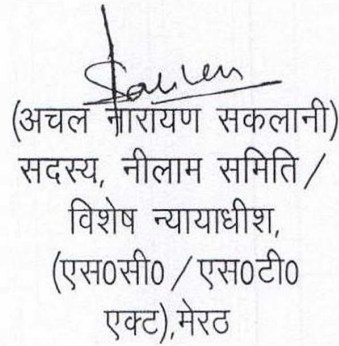 (अचल नारायण सकलानी)
सदस्य, नीलाम समिति /
विशेष न्यायाधीश,
(एस0सी0 / एस0टी0
एक्ट),मेरठ